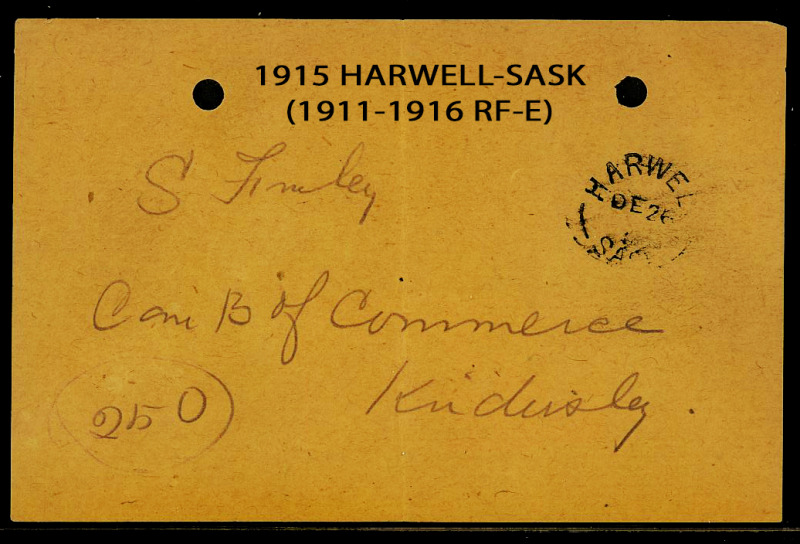 1915 HARWELL-SASK
(1911-1916 RF-E)
HARWEL
DE 26
SAS
S Finley
Can B of Commerce
Kindersley.
250